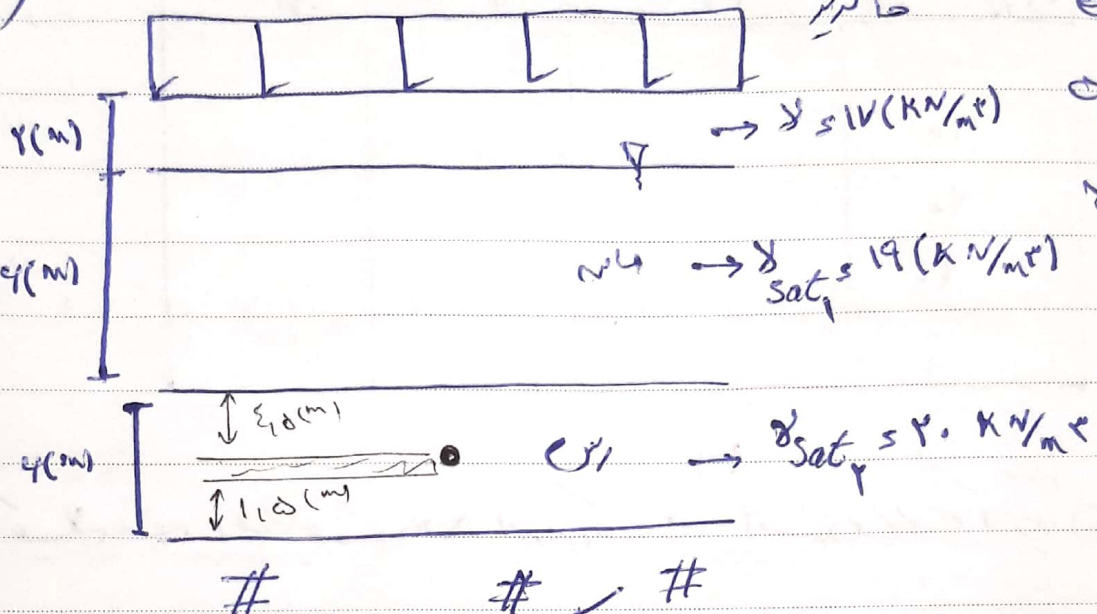 ۲(m)
γ = ۱۷(KN/m۳)
۶(m)
ماسه
γsat۱ = ۱۹(KN/m۳)
۴,۵(m)
۶(m)
رس
γsat۲ = ۲۰ KN/m۳
۱,۵(m)
# # #